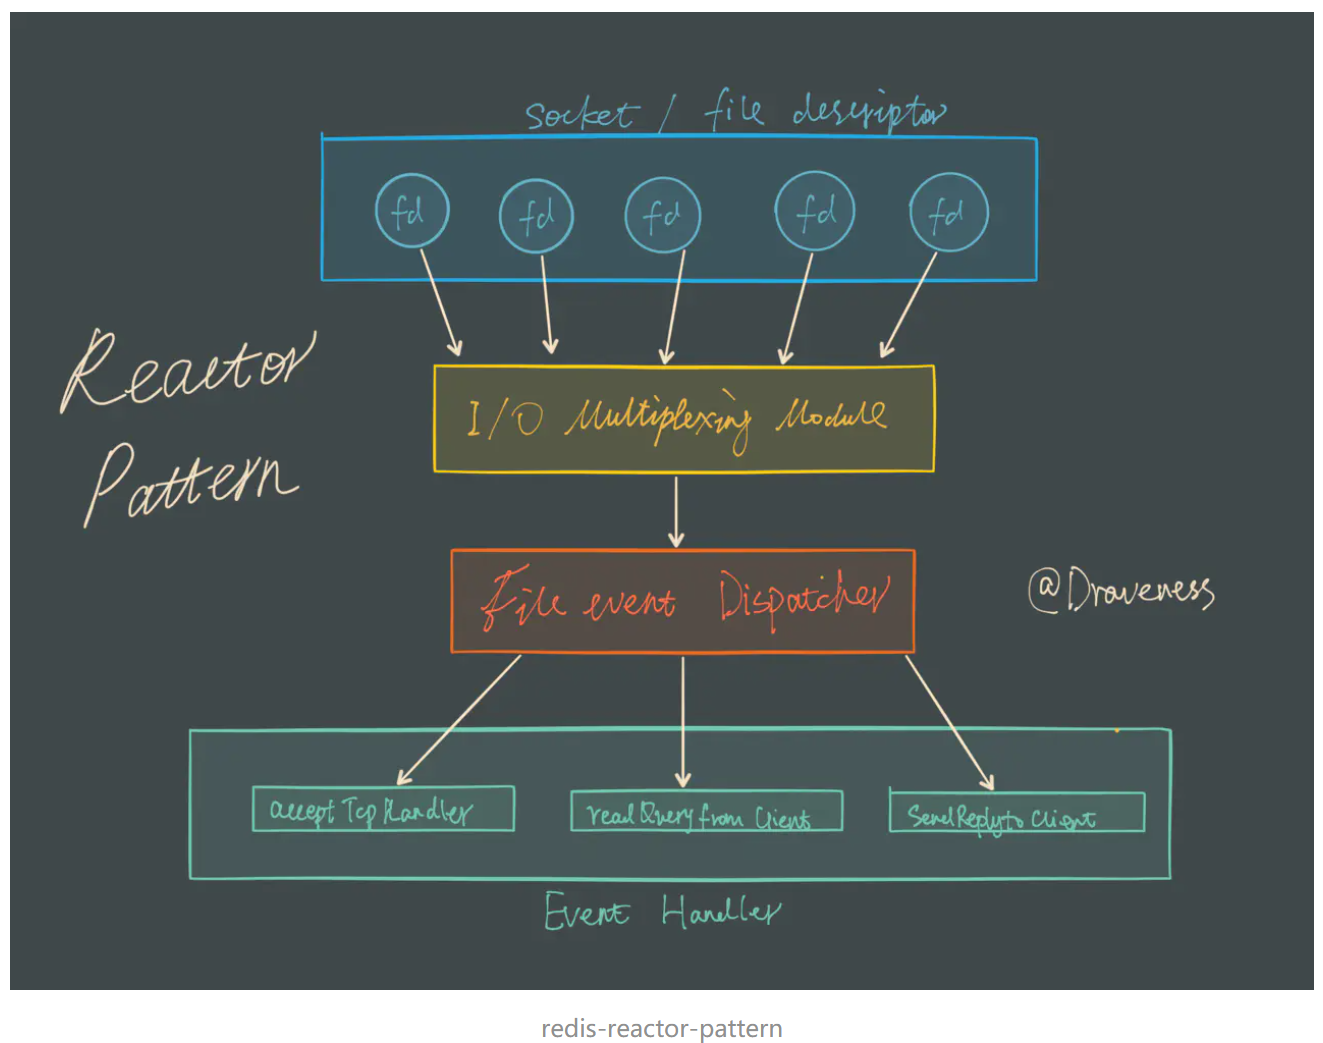 Socket / file descriptor
fd fd fd fd fd
Reactor
Pattern
I/O Multiplexing Module
File event Dispatcher
@Draveness
acceptTcpHandler
readQueryfromClient
SendReplytoClient
Event Handler
redis-reactor-pattern